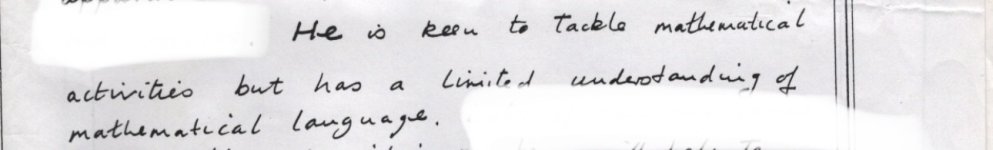 He is keen to tackle mathematical
activities but has a limited understanding of
mathematical language.